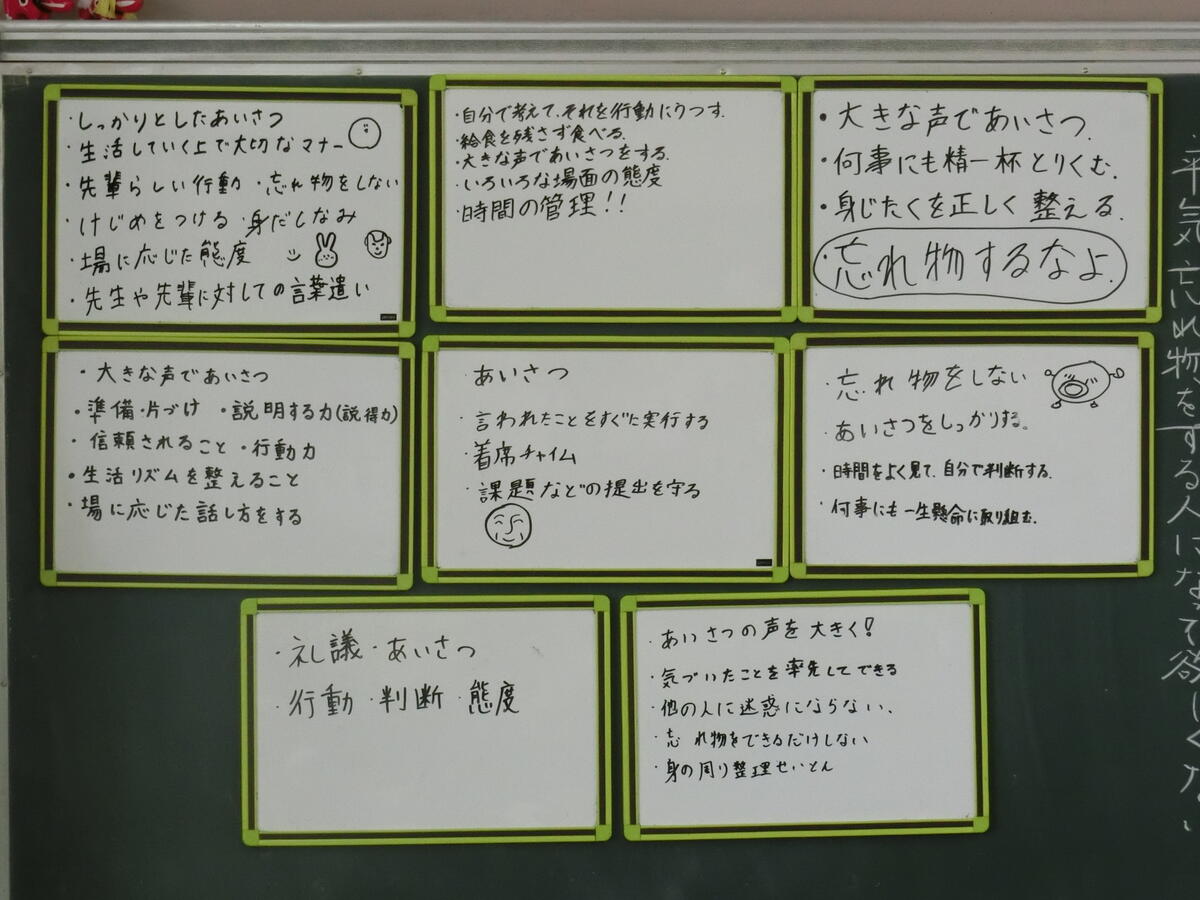 ・しっかりとしたあいさつ
・生活していく上で大切なマナー
・先輩らしい行動 ・忘れ物をしない
・けじめをつける ・身だしなみ
・場に応じた態度
・先生や先輩に対しての言葉遣い
・自分で考えて、それを行動にうつす。
・給食を残さず食べる。
・大きな声であいさつをする。
・いろいろな場面の態度
・時間の管理!!
・大きな声であいさつ。
・何事にも精一杯とりくむ。
・身じたくを正しく整える。
・忘れ物するなよ。
・大きな声であいさつ
・準備・片づけ ・説明する力(説得力)
・信頼されること ・行動力
・生活リズムを整えること
・場に応じた話し方をする
・あいさつ
・言われたことをすぐに実行する
・着席チャイム
・課題などの提出を守る
・忘れ物をしない
・あいさつをしっかりする。
・時間をよく見て、自分で判断する。
・何事にも一生懸命に取り組む。
・礼議・あいさつ
・行動・判断・態度
・あいさつの声を大きく!
・気づいたことを率先してできる
・他の人に迷惑にならない、
・忘れ物をできるだけしない
・身の周り整理せいとん
平気忘れ物をする人になって欲しくない